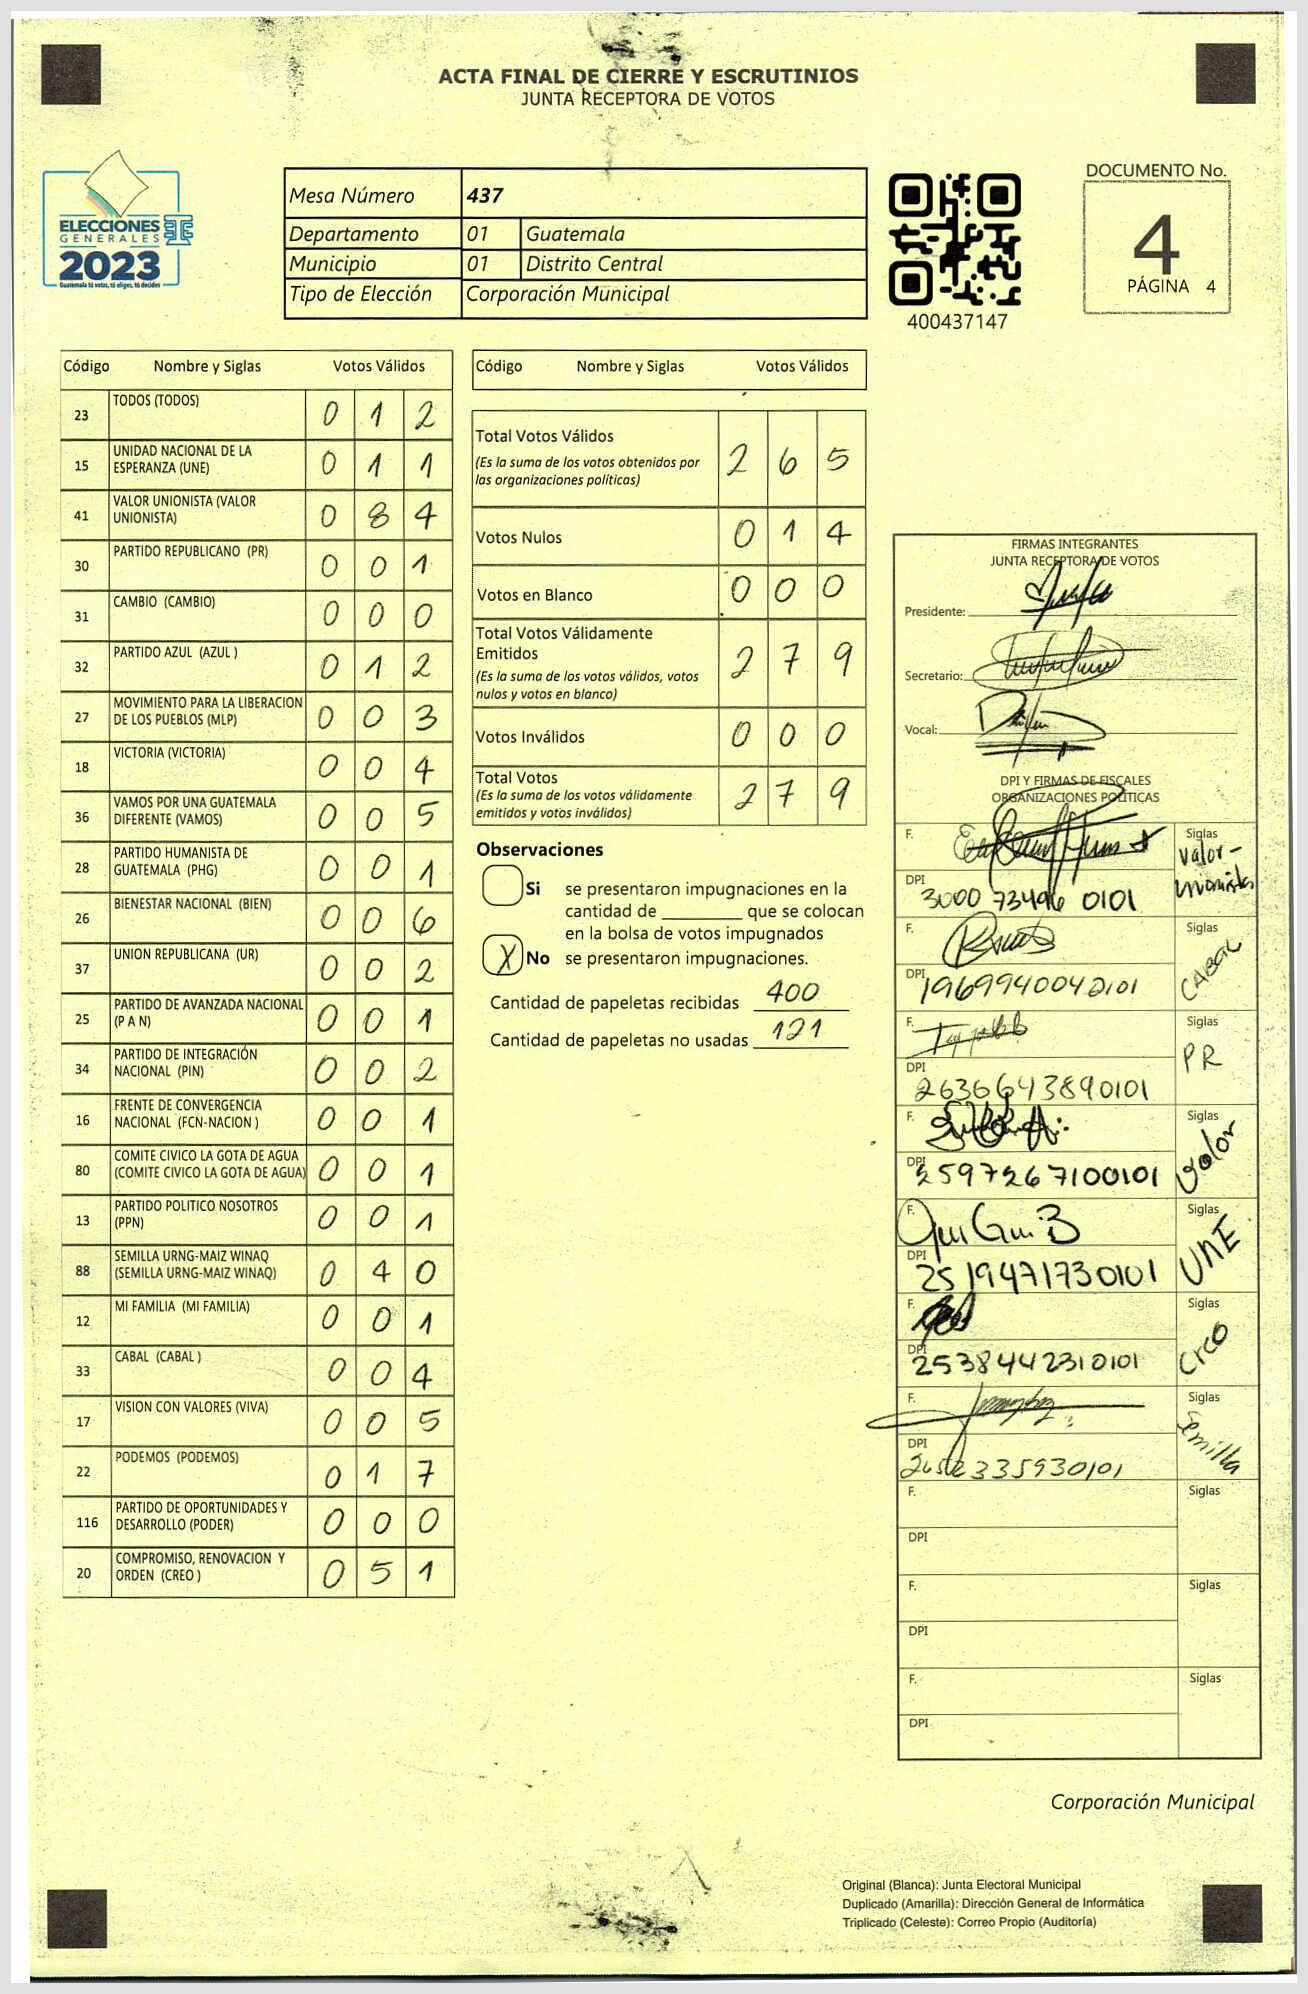 ACTA FINAL DE CIERRE Y ESCRUTINIOS
JUNTA RECEPTORA DE VOTOS
ELECCIONES
GENERALES
2023
Guatemala tú votas, tú eliges, tú decides
Mesa Número 437
Departamento 01 Guatemala
Municipio 01 Distrito Central
Tipo de Elección Corporación Municipal
400437147
DOCUMENTO No.
4
PÁGINA 4
Código Nombre y Siglas Votos Válidos
23 TODOS (TODOS) 0 1 2
15 UNIDAD NACIONAL DE LA
ESPERANZA (UNE) 0 1 1
41 VALOR UNIONISTA (VALOR
UNIONISTA) 0 8 4
30 PARTIDO REPUBLICANO (PR) 0 0 1
31 CAMBIO (CAMBIO) 0 0 0
32 PARTIDO AZUL (AZUL ) 0 1 2
27 MOVIMIENTO PARA LA LIBERACION
DE LOS PUEBLOS (MLP) 0 0 3
18 VICTORIA (VICTORIA) 0 0 4
36 VAMOS POR UNA GUATEMALA
DIFERENTE (VAMOS) 0 0 5
28 PARTIDO HUMANISTA DE
GUATEMALA (PHG) 0 0 1
26 BIENESTAR NACIONAL (BIEN) 0 0 6
37 UNION REPUBLICANA (UR) 0 0 2
25 PARTIDO DE AVANZADA NACIONAL
(P A N) 0 0 1
34 PARTIDO DE INTEGRACIÓN
NACIONAL (PIN) 0 0 2
16 FRENTE DE CONVERGENCIA
NACIONAL (FCN-NACION ) 0 0 1
80 COMITE CIVICO LA GOTA DE AGUA
(COMITE CIVICO LA GOTA DE AGUA) 0 0 1
13 PARTIDO POLITICO NOSOTROS
(PPN) 0 0 1
88 SEMILLA URNG-MAIZ WINAQ
(SEMILLA URNG-MAIZ WINAQ) 0 4 0
12 MI FAMILIA (MI FAMILIA) 0 0 1
33 CABAL (CABAL ) 0 0 4
17 VISION CON VALORES (VIVA) 0 0 5
22 PODEMOS (PODEMOS) 0 1 7
116 PARTIDO DE OPORTUNIDADES Y
DESARROLLO (PODER) 0 0 0
20 COMPROMISO, RENOVACION Y
ORDEN (CREO ) 0 5 1
Código Nombre y Siglas Votos Válidos
Total Votos Válidos 2 6 5
(Es la suma de los votos obtenidos por
las organizaciones políticas)
Votos Nulos 0 1 4
Votos en Blanco 0 0 0
Total Votos Válidamente
Emitidos 2 7 9
(Es la suma de los votos válidos, votos
nulos y votos en blanco)
Votos Inválidos 0 0 0
Total Votos 2 7 9
(Es la suma de los votos válidamente
emitidos y votos inválidos)
Observaciones
Si se presentaron impugnaciones en la
cantidad de ________ que se colocan
en la bolsa de votos impugnados
X No se presentaron impugnaciones.
Cantidad de papeletas recibidas 400
Cantidad de papeletas no usadas 121
FIRMAS INTEGRANTES
JUNTA RECEPTORA DE VOTOS
Presidente:
Secretario:
Vocal:
DPI Y FIRMAS DE FISCALES
ORGANIZACIONES POLÍTICAS
F. Siglas
Valor-
unionista
DPI 3000 73496 0101
F. Siglas
CABAL
DPI 1969940042101
F. Siglas
PR
DPI 2636643890101
F. Siglas
Valor
DPI 2597267100101
F. Siglas
UNE
DPI 2519471730101
F. Siglas
Creo
DPI 2538442310101
F. Siglas
Semilla
DPI
F. Siglas
DPI
F. Siglas
DPI
F. Siglas
DPI
Corporación Municipal
Original (Blanca): Junta Electoral Municipal
Duplicado (Amarilla): Dirección General de Informática
Triplicado (Celeste): Correo Propio (Auditoría)